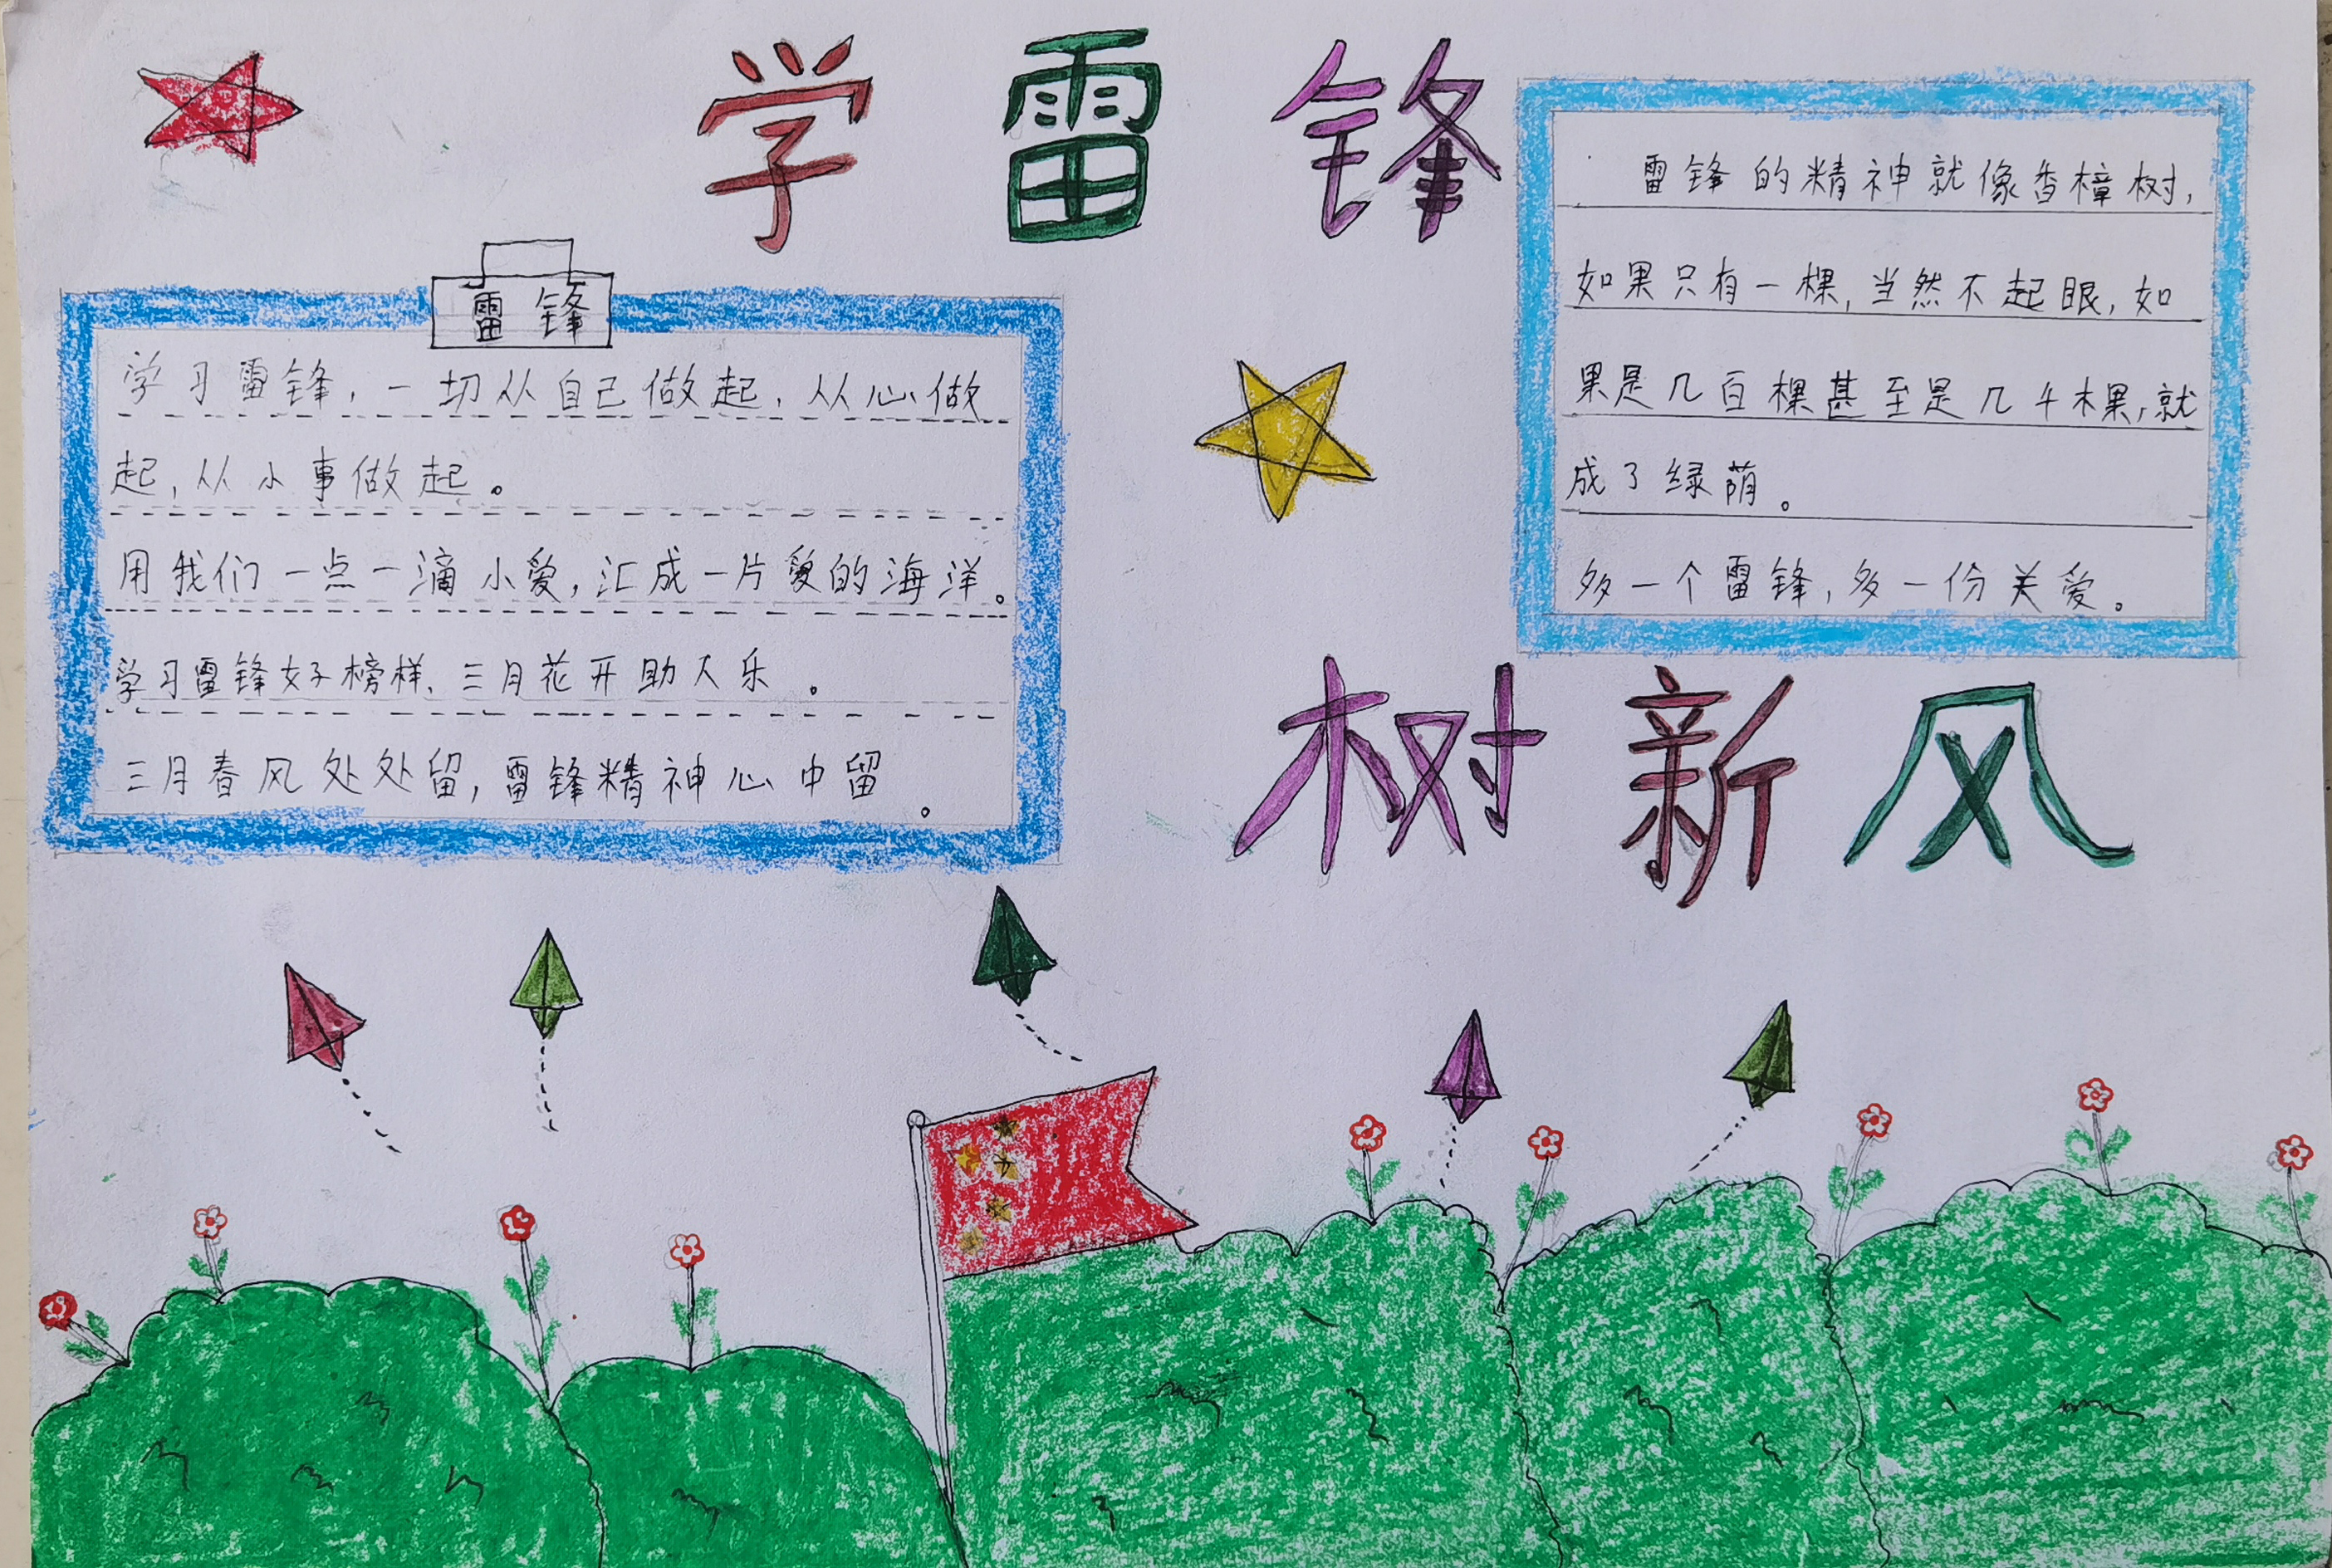 学雷锋
雷锋
学习雷锋,一切从自己做起,从心做
起,从小事做起。
用我们一点一滴小爱,汇成一片爱的海洋。
学习雷锋好榜样、三月花开助人乐。
三月春风处处留,雷锋精神心中留。
雷锋的精神就像香樟树,
如果只有一棵,当然不起眼,如
果是几百棵甚至是几千棵,就
成了绿荫。
多一个雷锋,多一份关爱。
树新风